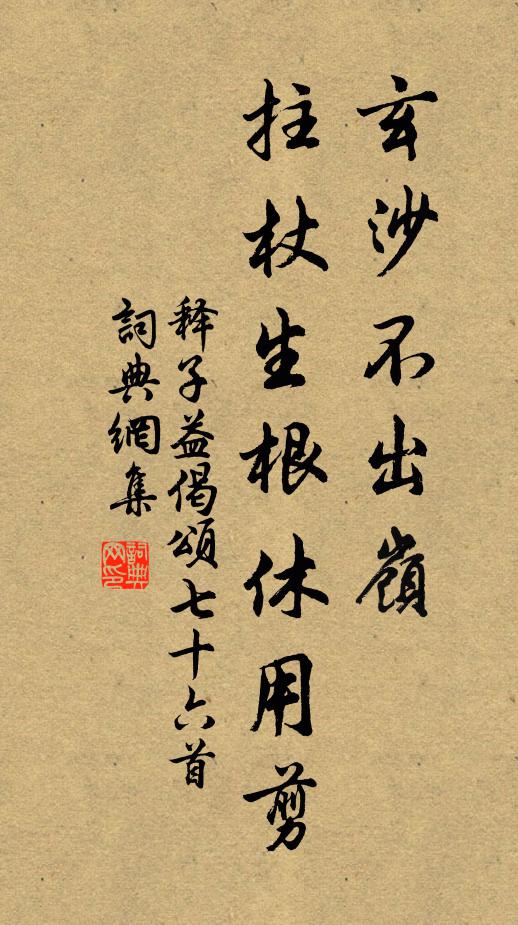 玄沙不出嶺
拄杖生根休用剪
释子益偈頌七十六首
詞典網集
詞典网印